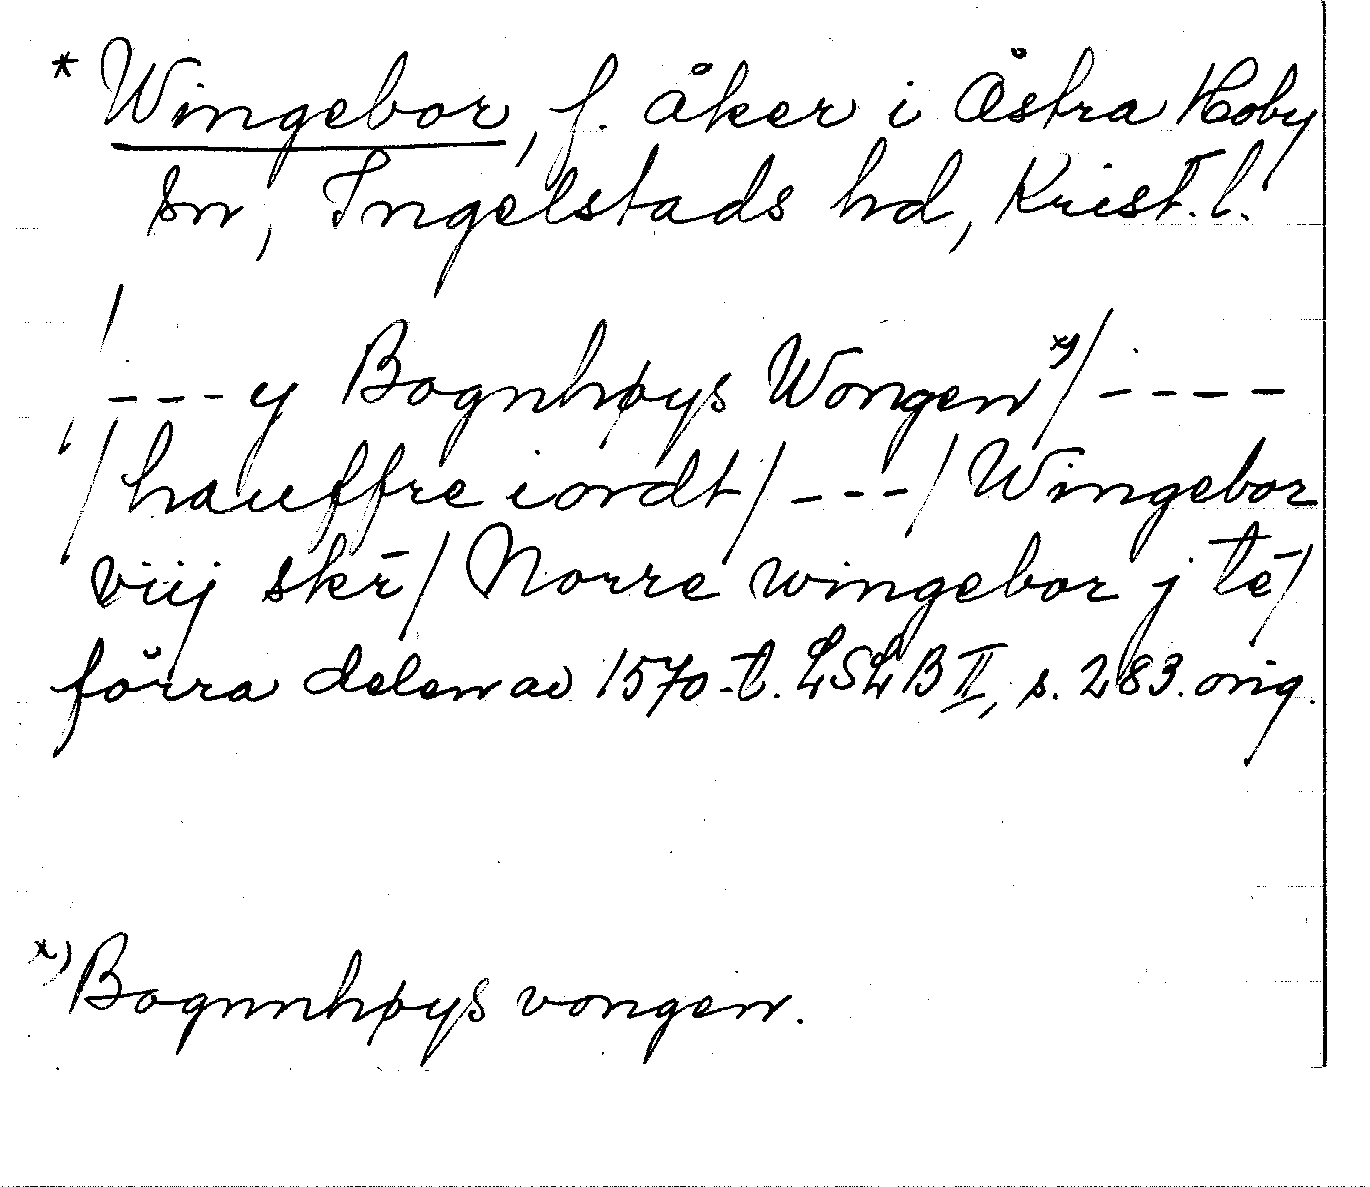 * Wingebor, f. åker i Östra Hoby
sn, Ingelstads hd, Krist. l.
/---y Bognhøys Wongen x)/----
/hauffre iordt/---/Wingebor
viij skr̄/Norre wingebor j tē/
förra delen av 1570-t. LSLB II, s. 283. orig.
x) Bognnhøys vongen.